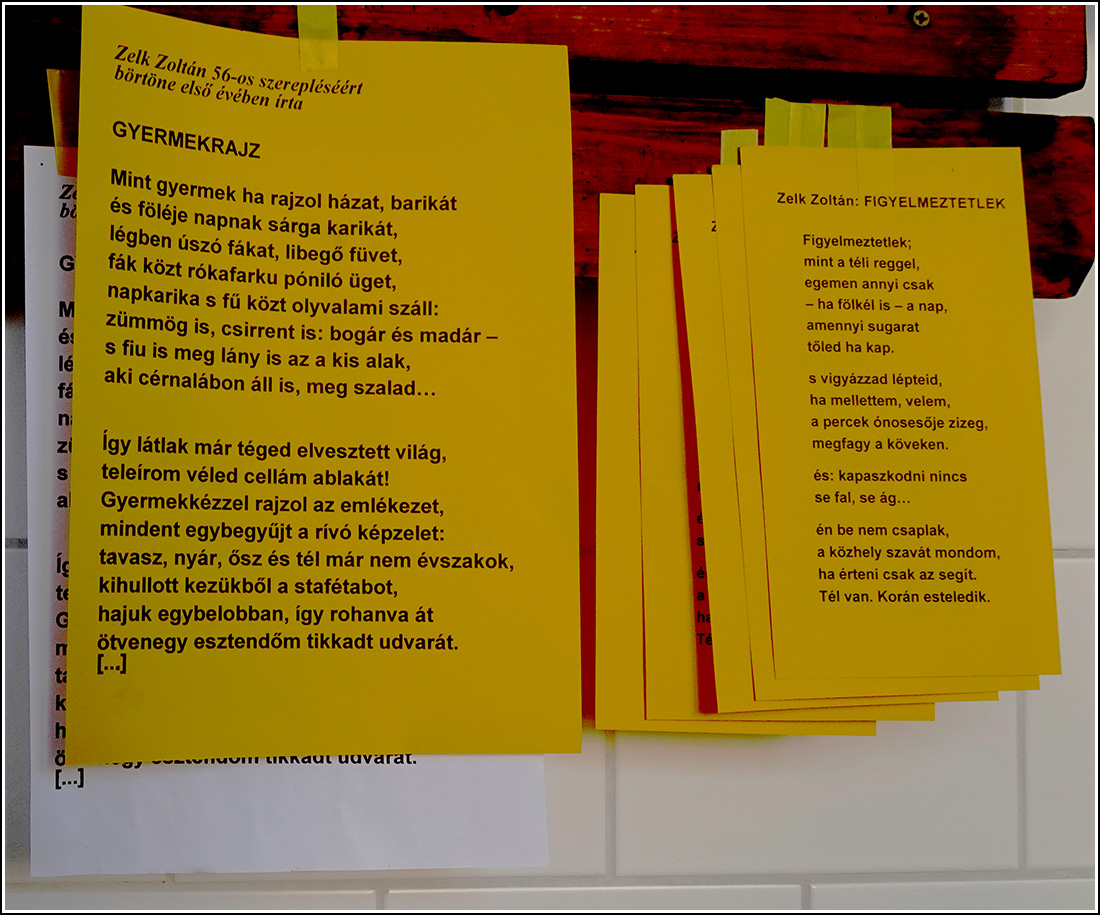 Zelk Zoltán 56-os szerepléséért
börtöne első évében írta
GYERMEKRAJZ
Mint gyermek ha rajzol házat, barikát
és föléje napnak sárga karikát,
légben úszó fákat, libegő füvet,
fák közt rókafarku póniló üget,
napkarika s fű közt olyvalami száll:
zümmög is, csirrent is: bogár és madár –
s fiu is meg lány is az a kis alak,
aki cérnalábon áll is, meg szalad...
Így látlak már téged elvesztett világ,
teleírom véled cellám ablakát!
Gyermekkézzel rajzol az emlékezet,
mindent egybegyűjt a rívó képzelet:
tavasz, nyár, ősz és tél már nem évszakok,
kihullott kezükből a stafétabot,
hajuk egybelobban, így rohanva át
ötvenegy esztendőm tikkadt udvarát.
[...]
esztendőm tikkadt udvarát.
[...]
Zelk Zoltán: FIGYELMEZTETLEK
Figyelmeztetlek;
mint a téli reggel,
egemen annyi csak
– ha fölkél is – a nap,
amennyi sugarat
tőled ha kap.
s vigyázzad lépteid,
ha mellettem, velem,
a percek ónosesője zizeg,
megfagy a köveken.
és: kapaszkodni nincs
se fal, se ág...
én be nem csaplak,
a közhely szavát mondom,
ha érteni csak az segít.
Tél van. Korán esteledik.